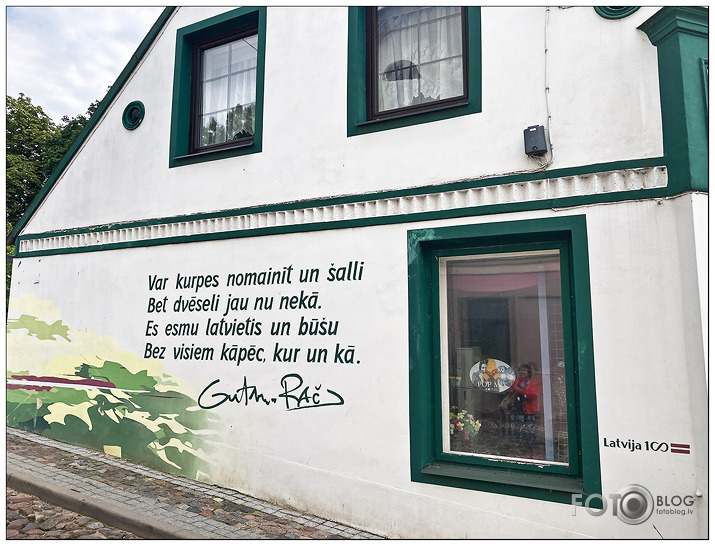 Var kurpes nomainīt un šalli
Bet dvēseli jau nu nekā.
Es esmu latvietis un būšu
Bez visiem kāpēc, kur un kā.
Gutm. RAČ
POP
Latvija 100
FOTO BLOG
fotoblog.lv